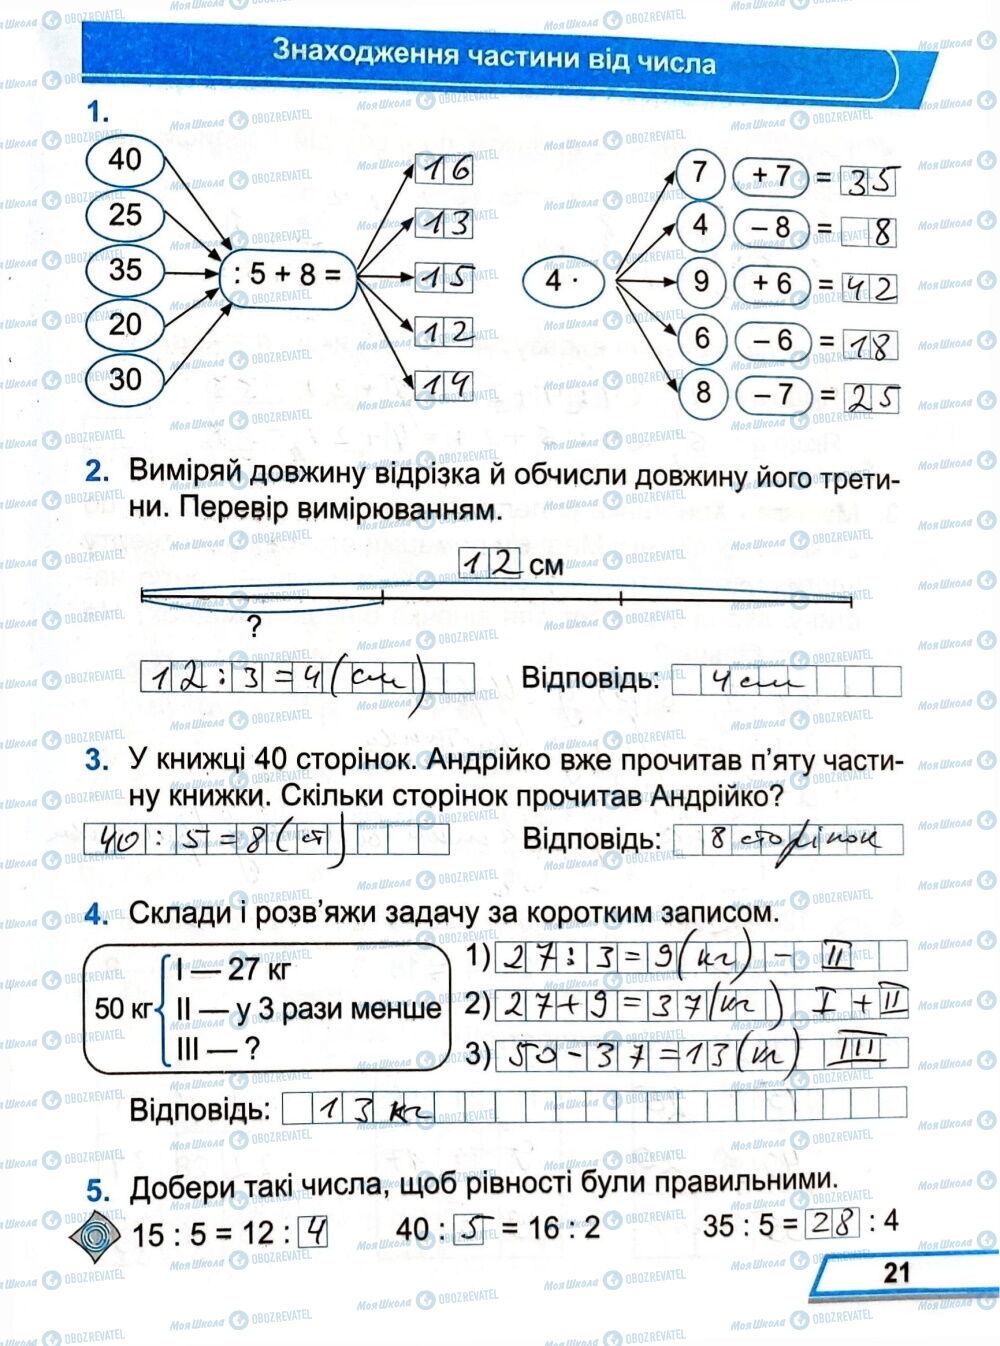 Знаходження частини від числа
1.
40 25 35 20 30
: 5 + 8 =
16
13
15
12
14
4 ·
7 + 7 = 35
4 – 8 = 8
9 + 6 = 42
6 – 6 = 18
8 – 7 = 25
2. Виміряй довжину відрізка й обчисли довжину його трети-
ни. Перевір вимірюванням.
12 см
?
12 : 3 = 4 (см) Відповідь: 4 см
3. У книжці 40 сторінок. Андрійко вже прочитав п'яту части-
ну книжки. Скільки сторінок прочитав Андрійко?
40 : 5 = 8 (ст) Відповідь: 8 сторінок
4. Склади і розв'яжи задачу за коротким записом.
50 кг
I — 27 кг
II — у 3 рази менше
III — ?
1) 27 : 3 = 9 (кг) – II
2) 27 + 9 = 37 (кг) I + II
3) 50 – 37 = 13 (кг) III
Відповідь: 13 кг
5. Добери такі числа, щоб рівності були правильними.
15 : 5 = 12 : 4 40 : 5 = 16 : 2 35 : 5 = 28 : 4
21
МояШкола OBOZREVATEL